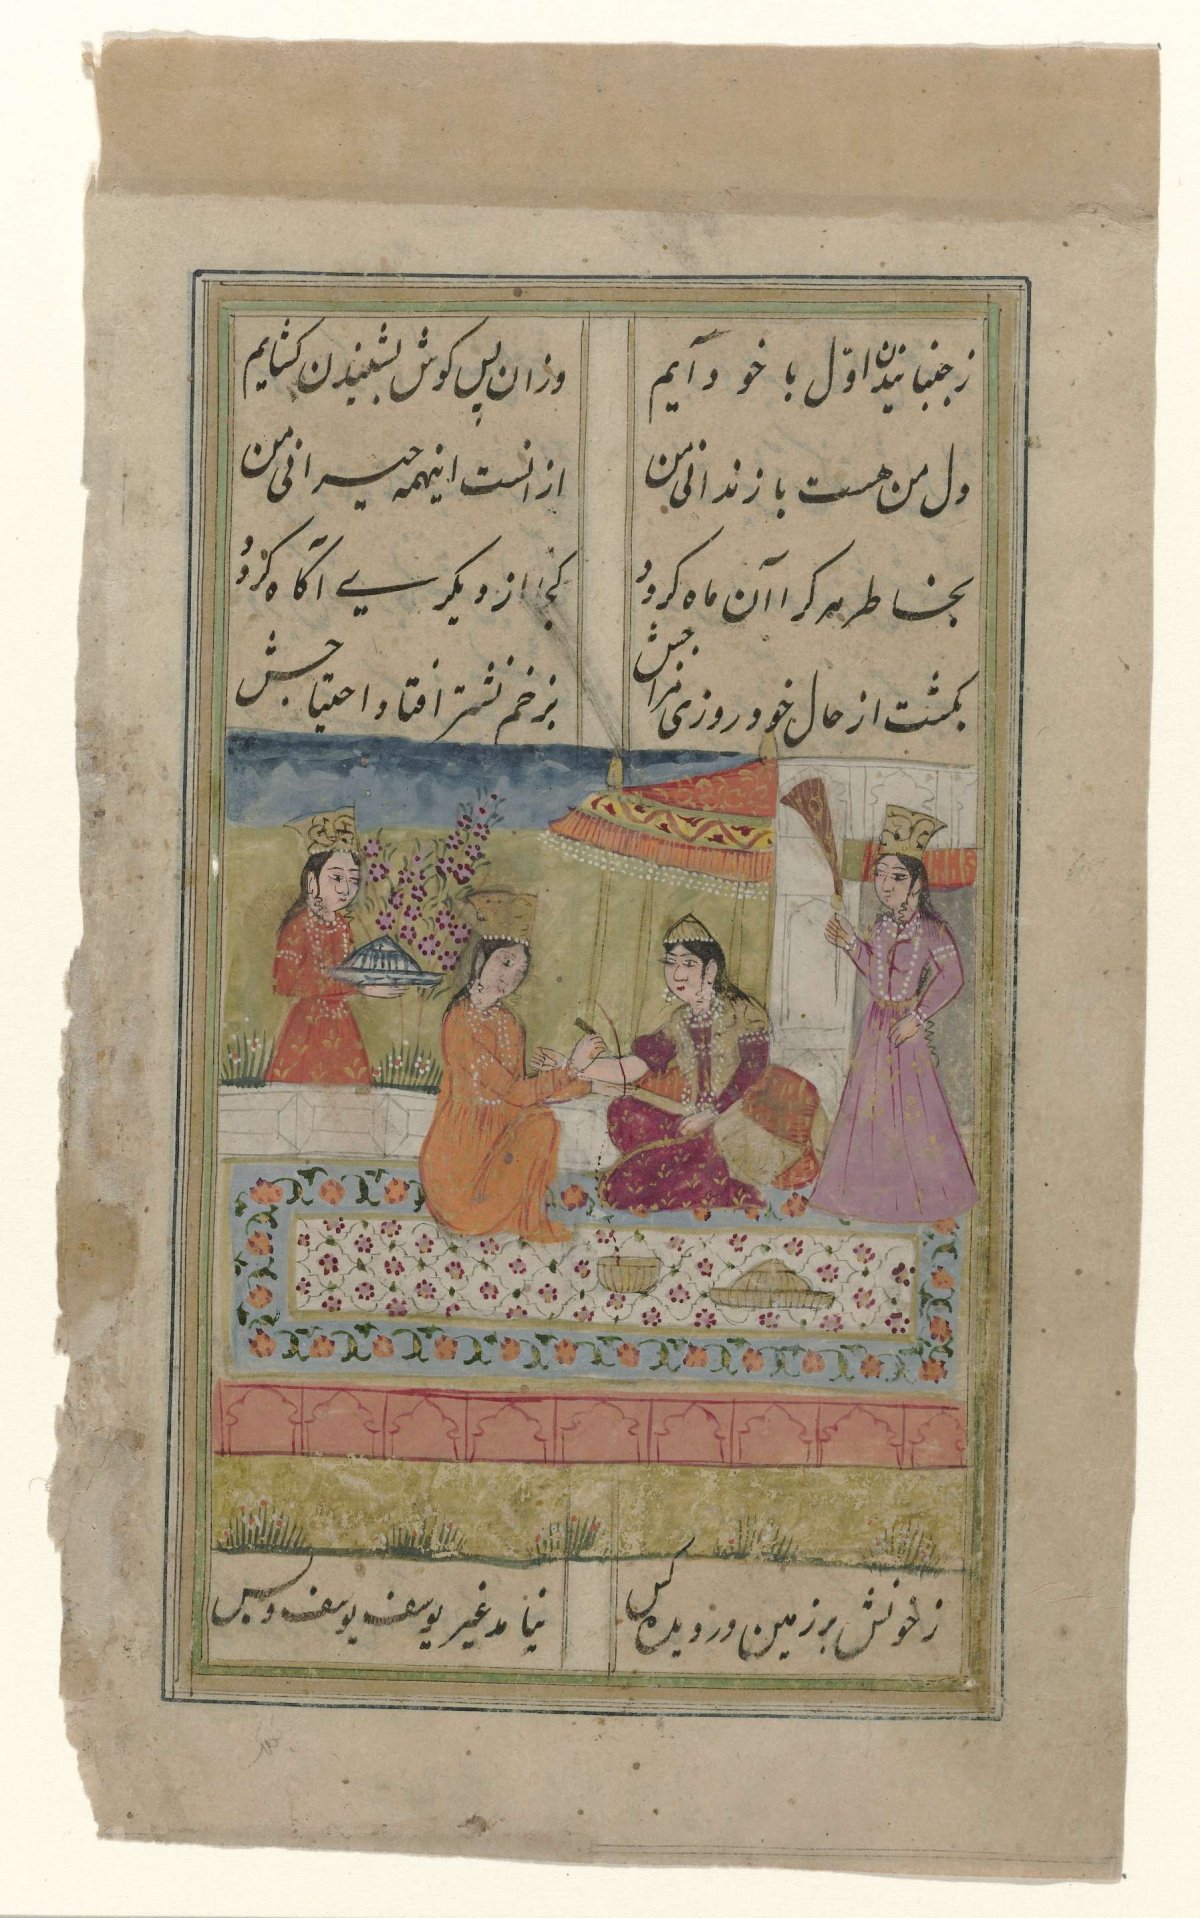 ز جنبانیدن اول با خود آیم
وزان پس کوش بشنیدن کشایم
دل من هست با زندانی من
از انست اینهمه حیرانی من
بخاطر هر کرا آن ماه کردد
کجا از دیکری آکاه کردد
بکشت از حال خود روزی مزاجش
بزخم نشتر افتاد احتیاجش
ز خونش بر زمین در دیده کس
نیامد غیر یوسف یوسف و بس